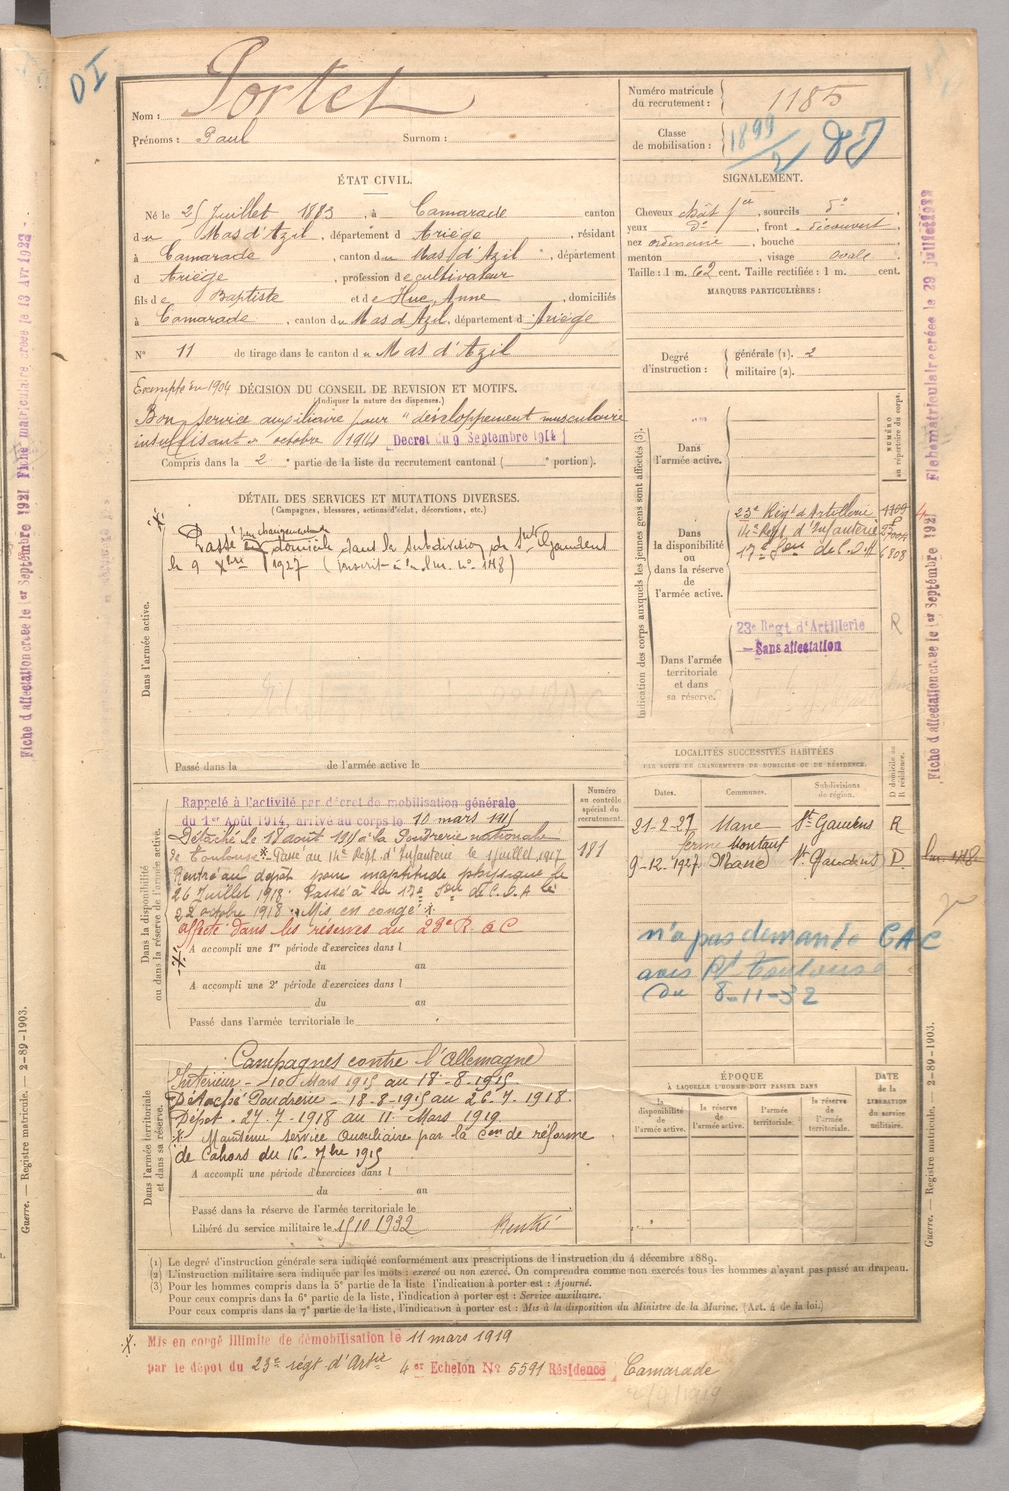 DI
Nom : Portet
Prénoms : Paul Surnom :
Numéro matricule du recrutement : 1185
Classe de mobilisation : 1899/2
ÉTAT CIVIL.
Né le 25 Juillet 1883, à Camarade canton
du Mas d'Azil, département d Ariège, résidant
à Camarade, canton du Mas d'Azil, département
d Ariège, profession de cultivateur
fils de Baptiste et de Huc, Anne, domiciliés
à Camarade, canton du Mas d'Azil, département d Ariège
N° 11 de tirage dans le canton du Mas d'Azil
SIGNALEMENT.
Cheveux chât f, sourcils d°,
yeux d°, front découvert,
nez ordinaire, bouche
menton , visage ovale
Taille : 1 m. 62 cent. Taille rectifiée : 1 m. cent.
MARQUES PARTICULIÈRES :
Degré d'instruction : générale (1). 2
militaire (2).
Exempté en 1904 DÉCISION DU CONSEIL DE REVISION ET MOTIFS.
(Indiquer la nature des dispenses.)
Bon service auxiliaire pour "développement musculaire
insuffisant" octobre 1914 Decret du 9 Septembre 1914
Compris dans la 2e partie de la liste du recrutement cantonal ( e portion).
DÉTAIL DES SERVICES ET MUTATIONS DIVERSES.
(Campagnes, blessures, actions d'éclat, décorations, etc.)
Dans l'armée active.
Passé par changement de domicile dans la subdivision de St Gaudens
le 9 Xbre 1927 (inscrit à la n° 148)
Passé dans la de l'armée active le
Indication des corps auxquels les jeunes gens sont affectés (3).
NUMÉRO au répertoire du corps.
Dans l'armée active.
Dans la disponibilité ou dans la réserve de l'armée active.
23e Régt d'Artillerie 1109
14e Régt d'Infanterie
17e Son de C.O.A 6808
Dans l'armée territoriale et dans sa réserve.
23e Regt d'Artillerie R
Sans affectation
LOCALITÉS SUCCESSIVES HABITÉES
PAR SUITE DE CHANGEMENTS DE DOMICILE OU DE RÉSIDENCE.
Dates. Communes. Subdivisions de région. D domicile ou R résidence.
21-2-27 Mane St Gaudens R
ferme Montaut
9-12-1927 Mane St Gaudens D
n'a pas demandé CAC
avis Pt Toulouse
du 8-11-32
Dans la disponibilité ou dans la réserve de l'armée active.
Numéro au contrôle spécial du recrutement
181
Rappelé à l'activité par décret de mobilisation générale
du 1er Août 1914, arrivé au corps le 10 mars 1915
Détaché le 18 août 1915 à la Poudrerie nationale
de Toulouse. Passé au 14e Régt d'Infanterie le 1 juillet 1917
Rentré au dépôt pour inaptitude physique le
26 Juillet 1918. Passé à la 17e Son de C.O.A le
22 octobre 1918. Mis en congé
affecté dans les réserves du 23e R. A C
A accompli une 1re période d'exercices dans l
du au
A accompli une 2e période d'exercices dans l
du au
Passé dans l'armée territoriale le
Dans l'armée territoriale et dans sa réserve.
Campagnes contre l'Allemagne
Intérieur - 10 Mars 1915 au 18-8-1915.
Détaché Poudrerie - 18-8-1915 au 26.7.1918.
Dépôt - 27-7-1918 au 11 Mars 1919
Maintenu service Auxiliaire par la Con de réforme
de Cahors du 16-7bre 1915
A accompli une période d'exercices dans l
du au
Passé dans la réserve de l'armée territoriale le
Libéré du service militaire le 15 10 1932
ÉPOQUE
À LAQUELLE L'HOMME DOIT PASSER DANS
la disponibilité de l'armée active.
la réserve de l'armée active.
l'armée territoriale.
la réserve de l'armée territoriale.
DATE de la LIBÉRATION du service militaire.
(1) Le degré d'instruction générale sera indiqué conformément aux prescriptions de l'instruction du 4 décembre 1889.
(2) L'instruction militaire sera indiquée par les mots : exercé ou non exercé. On comprendra comme non exercés tous les hommes n'ayant pas passé au drapeau.
(3) Pour les hommes compris dans la 5e partie de la liste l'indication à porter est : Ajourné.
Pour ceux compris dans la 6e partie de la liste, l'indication à porter est : Service auxiliaire.
Pour ceux compris dans la 7e partie de la liste, l'indication à porter est : Mis à la disposition du Ministre de la Marine. (Art. 4 de la loi.)
Mis en congé illimité de démobilisation le 11 mars 1919
par le dépôt du 23e régt d'Artie 4e Echelon N° 5591 Résidence Camarade
Guerre. — Registre matricule. — 2-89-1903.
Guerre. — Registre matricule. — 2-89-1903.
Fiche d'affectation créée le 1er Septembre 1921
Fiche matriculaire créée le 29 juillet 1932
Fiche d'affectation créée le 1er Septembre 1921 Fiche matriculaire créée le 13 Avr 1923